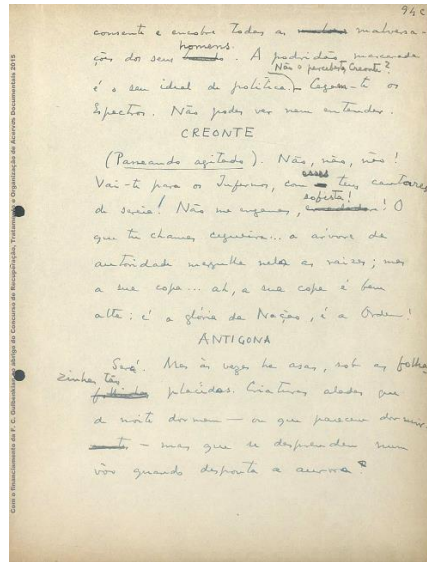 94 C
consente e encobre todas as malversa-
ções dos seus homens. A podridão mascarada
Não o percebeste, Creonte?
é o seu ideal de política. Cegam-te os
Espectros. Não podes ver nem entender.
CREONTE
(Passeando agitado). Não, não, não!
Vai-te para os Infernos, com esses teus cantares
de sereia! Não me enganes, sofista! O
que tu chamas cegueira... a árvore da
autoridade mergulha nela as raízes; mas
a sua copa... ah, a sua copa é bem
alta: é a glória da Nação, é a Ordem!
ANTIGONA
Será. Mas às vezes há asas, sob as folha-
zinhas tão
plácidas. Criaturas aladas que
de noite dormem — ou que parecem dormir
— mas que se desprendem num
vôo quando desponta a aurora?
Com o financiamento da F. C. Gulbenkian, ao abrigo do Concurso de Recuperação, Tratamento e Organização de Acervos Documentais 2015